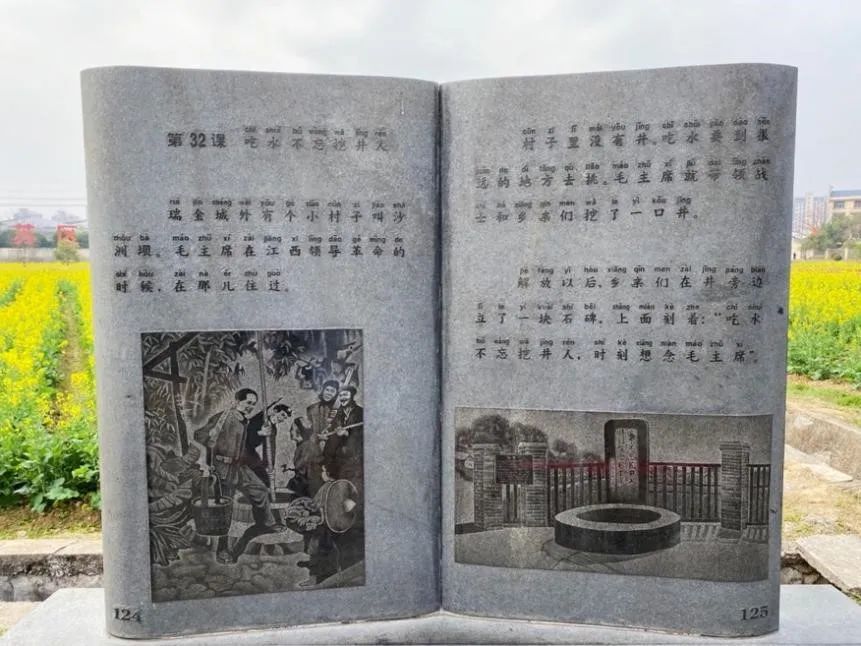 第32课 chī shuǐ bú wàng wā jǐng rén
吃水不忘挖井人
ruì jīn chéng wài yǒu gè xiǎo cūn zi jiào shā
瑞金城外有个小村子叫沙
zhōu bà máo zhǔ xí zài jiāng xī lǐng dǎo gé mìng de
洲坝。毛主席在江西领导革命的
shí hòu zài nà ér zhù guo
时候,在那儿住过。
124
cūn zi lǐ méi yǒu jǐng chī shuǐ yào dào hěn
村子里没有井。吃水要到很
yuǎn de dì fāng qù tiāo máo zhǔ xí jiù dài lǐng zhàn
远的地方去挑。毛主席就带领战
shì hé xiāng qīn men wā le yì kǒu jǐng
士和乡亲们挖了一口井。
jiě fàng yǐ hòu xiāng qīn men zài jǐng páng biān
解放以后,乡亲们在井旁边
lì le yí kuài shí bēi shàng miàn kè zhe chī shuǐ
立了一块石碑,上面刻着:“吃水
bú wàng wā jǐng rén shí kè xiǎng niàn máo zhǔ xí
不忘挖井人,时刻想念毛主席”。
125